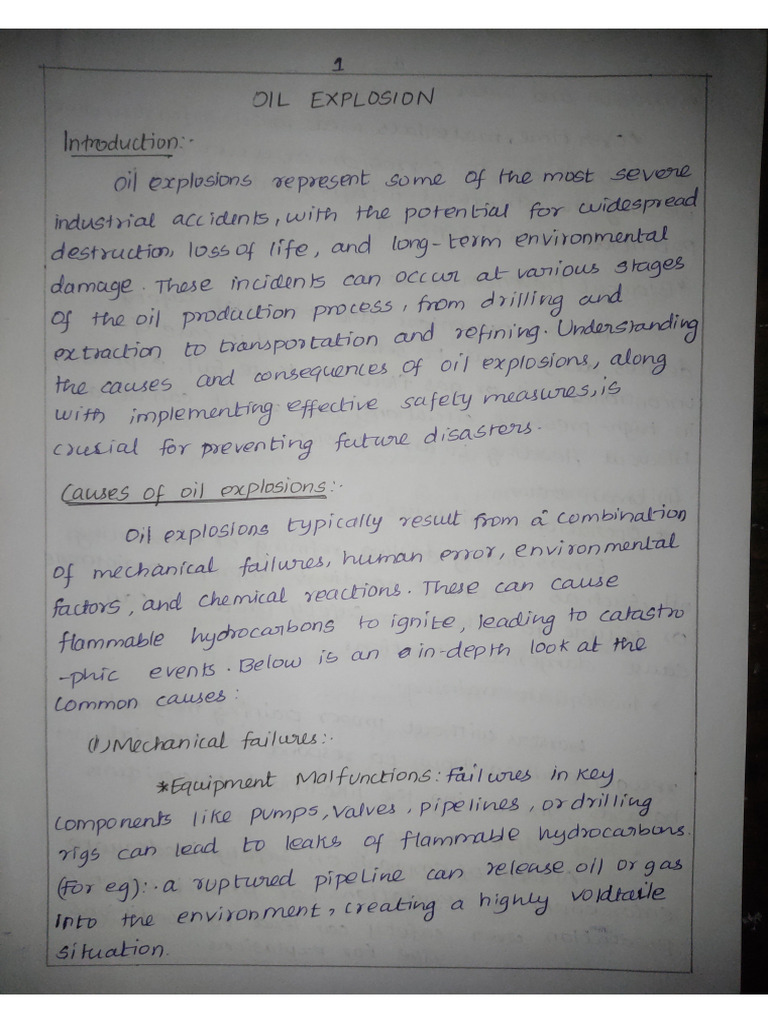 1
OIL EXPLOSION
Introduction:-
Oil explosions represent some of the most severe
industrial accidents, with the potential for widespread
destruction, loss of life, and long-term environmental
damage. These incidents can occur at various stages
of the oil production process, from drilling and
extraction to transportation and refining. Understanding
the causes and consequences of oil explosions, along
with implementing effective safety measures, is
crucial for preventing future disasters.
Causes of oil explosions:-
Oil explosions typically result from a combination
of mechanical failures, human error, environmental
factors, and chemical reactions. These can cause
flammable hydrocarbons to ignite, leading to catastro
-phic events. Below is an in-depth look at the
common causes:
(1) Mechanical failures:-
*Equipment Malfunctions: Failures in key
components like pumps, valves, pipelines, or drilling
rigs can lead to leaks of flammable hydrocarbons.
(For eg):- a ruptured pipeline can release oil or gas
into the environment, creating a highly
situation.